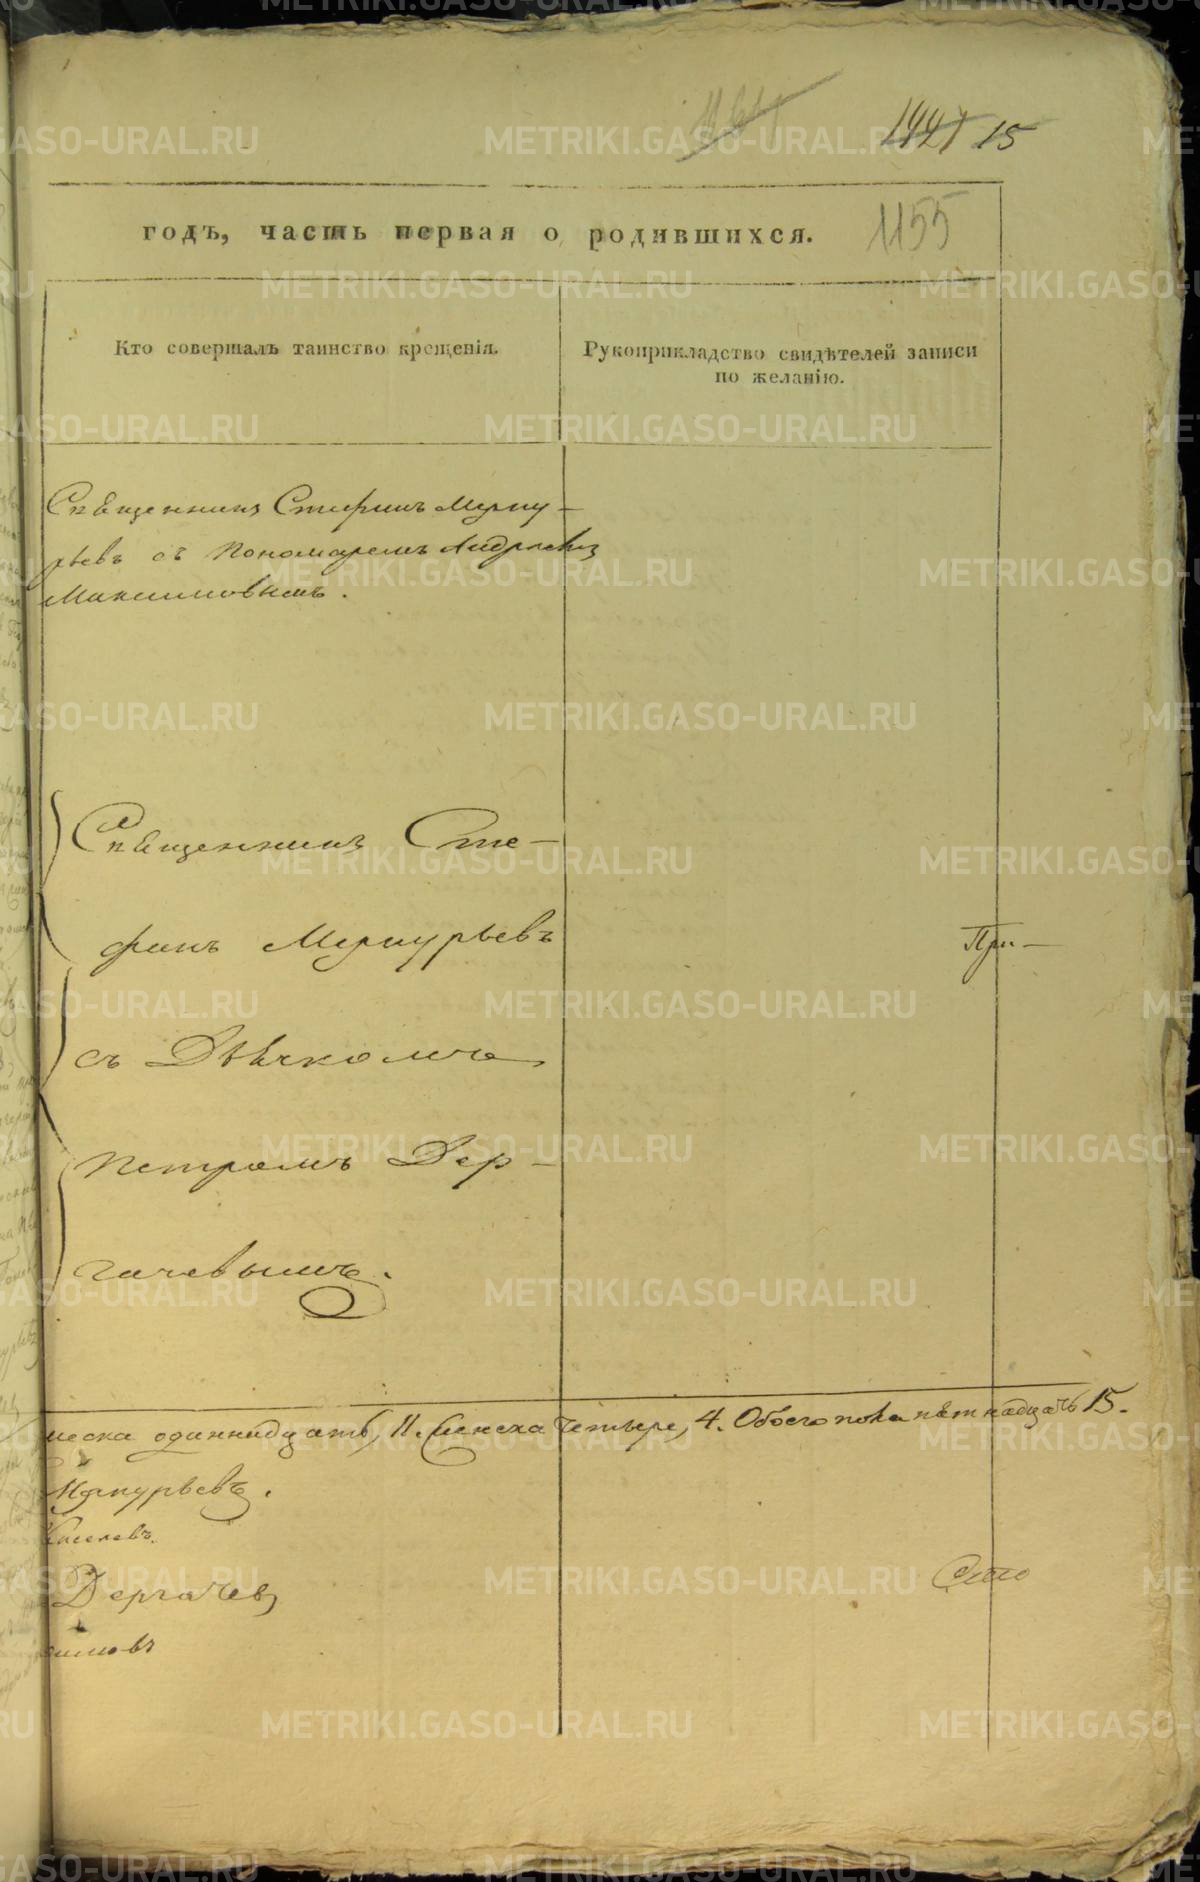 1421 15
1155
годъ, часть первая о родившихся.
Кто совершалъ таинство крещенія.
Рукоприкладство свидѣтелей записи
по желанію.
Священникъ Стефанъ Мерку-
рьевъ съ Пономаремъ Андреемъ
Максимовымъ.
Священникъ Сте-
фанъ Меркурьевъ
При-
съ Дьячкомъ
Петромъ Дер-
гачевымъ.
мужеска одиннадцать, 11. Женска четыре, 4. Обоего пола пятнадцать 15.
Меркурьевъ.
Киселевъ.
Дергачевъ
симовъ
METRIKI.GASO-URAL.RU